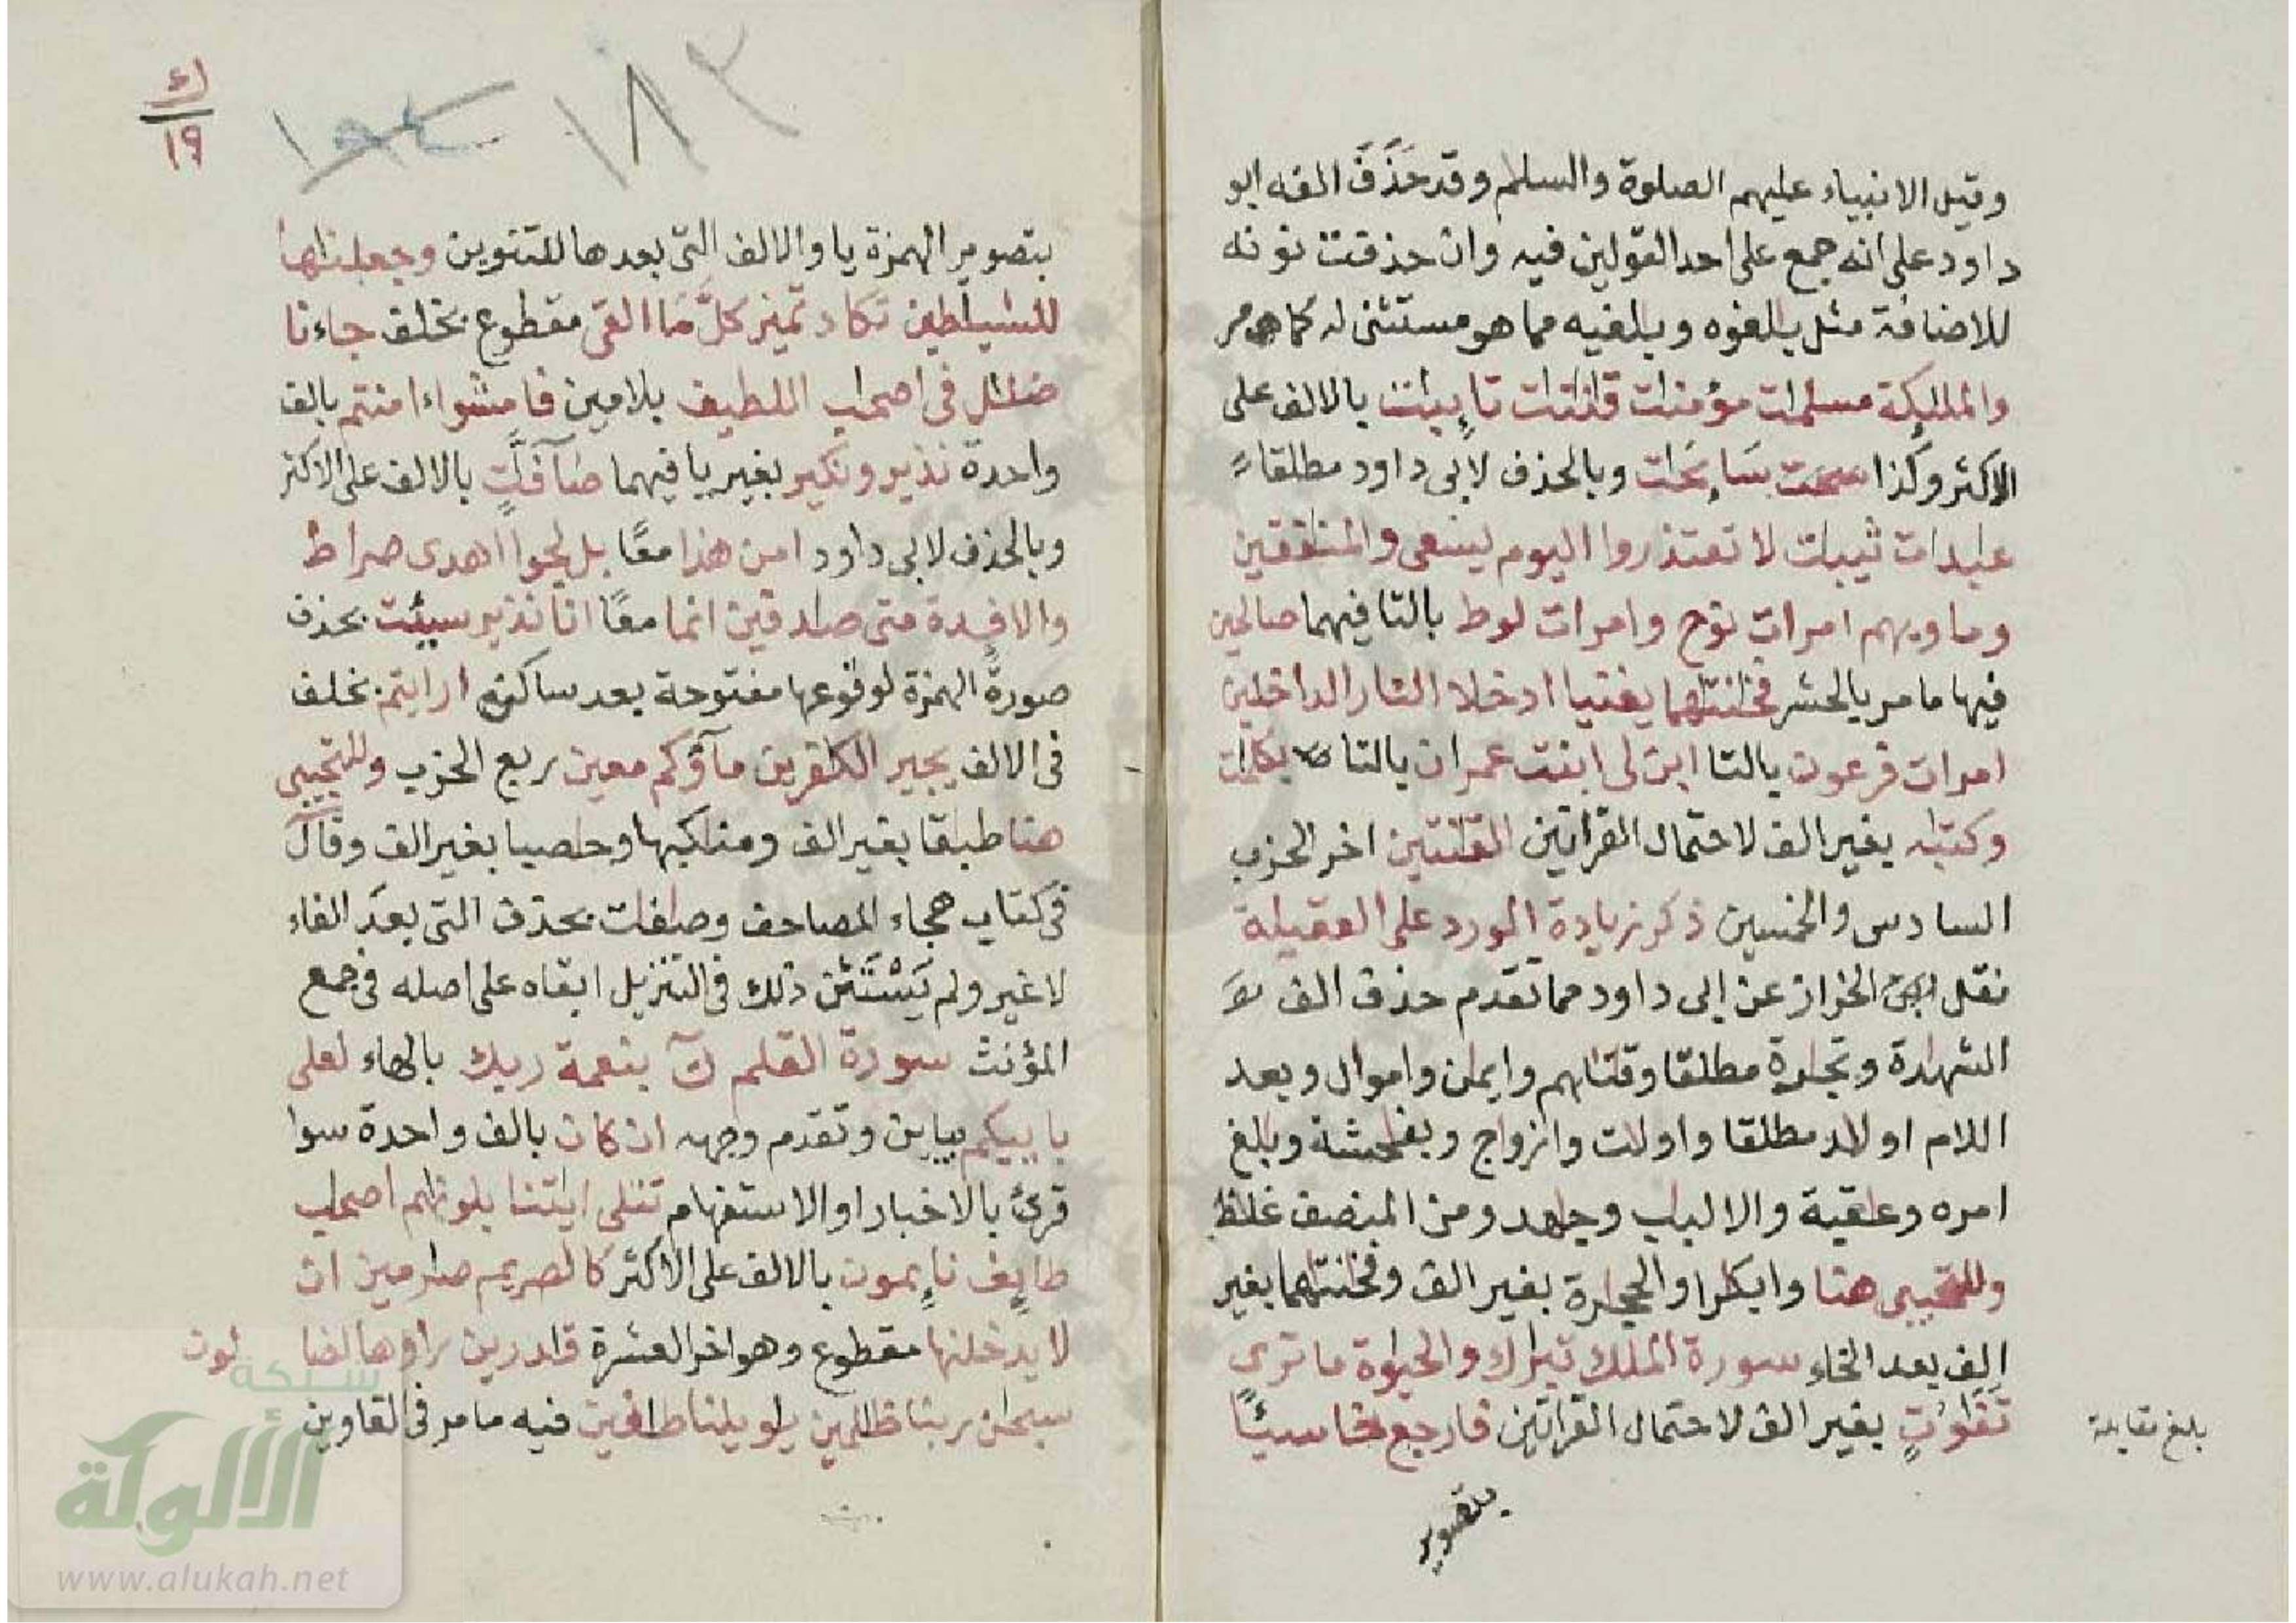 وقيل الانبياء عليهم الصلوة والسلم وقد حَذَفَ الفه ابو
داود على انه جمع على احد القولين فيه وان حذفت نونه
للاضافة مثل بلغوه وبلغيه مما هو مستثنى له كما مر
والملئكة مسلمت مؤمنت قنتت تايبت بالالف على
الاكثر وكذا سايحت وبالحذف لابى داود مطلقا
عبدات ثيبات لا تعتذروا اليوم يسعى والمنفقين
وماويهم امرات نوح وامرات لوط بالتا فيهما صالحين
فيها ما مر بالحشر فخانتهما يغنيا ادخلا النار الداخلين
امرات فرعون بالتا ابن لى ابنت عمران بالتا بكلمت
وكتبه بغير الف لاحتمال القراتين القنتين اخر الحزب
السادس والخمسين ذكر زيادة المورد على العقيلة
نقل الخراز عن ابى داود مما تقدم حذف الف
الشهدة وتجرة مطلقا وقتلهم وايمن واموال وبعد
اللام اولد مطلقا واولت وازواج وبفحشة وبلغ
امره وعقبة والالبب وجهد ومن المنصف غلظ
وللتجيبى هنا وابكرا والحجرة بغير الف وفخنتهما بغير
الف بعد الخاء سورة الملك تبرك والحيوة ما ترى
تَفَوُتٍ بغير الف لاحتمال القراتين فارجع خاسئًا
بلغ مقابلة
بتصوير
ك
١٩
١٨٣
بتصوير الهمزة يا والالف التى بعدها للتنوين وجعلنها
للشيطين تكاد تميز كلَّ مَا القى مقطوع بخلف جاءنا
ضلل فى اصحب اللطيف بلامين فامشوا ءامنتم بالف
واحدة نذير ونكير بغير يا فيهما صآفّٰتٍ بالالف على الاكثر
وبالحذف لابى داود امن هذا معًا بل لجوا اهدى صراط
والافدة متى صدقين انما معًا انا نذير سيئت بحذف
صورة الهمزة لوقوعها مفتوحة بعد ساكن ارايتم بخلف
فى الالف يجير الكفرين مآؤكم معين ربع الحزب وللتجيبى
هنا طبقا بغير الف ومنكبها وحصبا بغير الف وقال
فى كتاب هجاء المصاحف وصفت بحذف التى بعد الفاء
لا غير ولم يَسْتَثْنِ ذلك فى التنزيل ابقاه على اصله فى جمع
المؤنث سورة القلم نٓ بنعمة ربك بالهاء لعلى
باييكم بيايين وتقدم وجهه ان كان بالف واحدة سوا
قرئ بالاخبار او الاستفهام تتلى ايتنا بلونهم اصحب
طايف نايمون بالالف على الاكثر كالصريم صرمين ان
لا يدخلنها مقطوع وهو اخر العشرة قدرين راوها لضا لون
سبحن ربنا ظلمين يويلنا طغين فيه ما مر فى الغاوين
شبكة
الألوكة
www.alukah.net